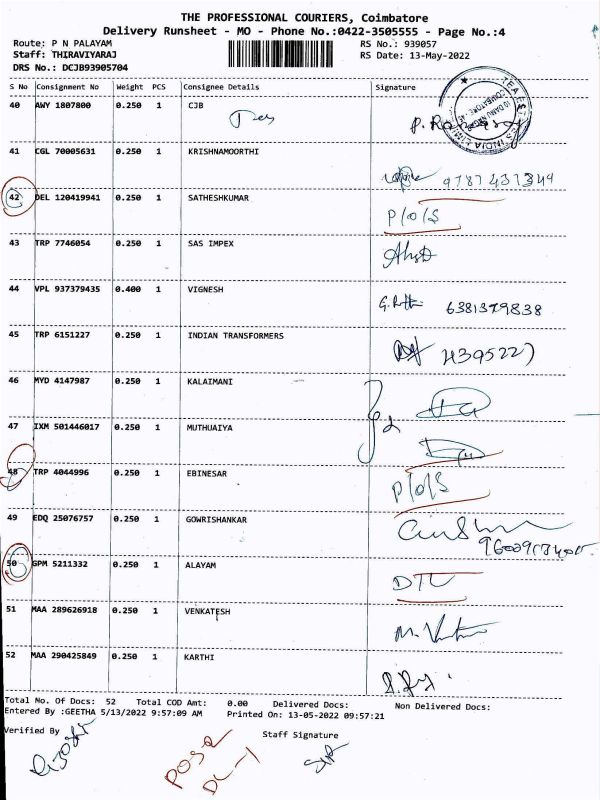 THE PROFESSIONAL COURIERS, Coimbatore
Delivery Runsheet - MO - Phone No.:0422-3505555 - Page No.:4
Route: P N PALAYAM RS No.: 939057
Staff: THIRAVIYARAJ RS Date: 13-May-2022
DRS No.: DCJB93905704
S No Consignment No Weight PCS Consignee Details Signature
40 AWY 1807800 0.250 1 CJB
41 CGL 70005631 0.250 1 KRISHNAMOORTHI
42 DEL 120419941 0.250 1 SATHESHKUMAR P/O/S
43 TRP 7746054 0.250 1 SAS IMPEX
44 VPL 937379435 0.400 1 VIGNESH 6381379838
45 TRP 6151227 0.250 1 INDIAN TRANSFORMERS
46 MYD 4147987 0.250 1 KALAIMANI
47 IXM 501446017 0.250 1 MUTHUAIYA
48 TRP 4044996 0.250 1 EBINESAR P/O/S
49 EDQ 25076757 0.250 1 GOWRISHANKAR
50 GPM 5211332 0.250 1 ALAYAM DTL
51 MAA 289626918 0.250 1 VENKATESH
52 MAA 290425849 0.250 1 KARTHI
Total No. Of Docs: 52 Total COD Amt: 0.00 Delivered Docs: Non Delivered Docs:
Entered By :GEETHA 5/13/2022 9:57:09 AM Printed On: 13-05-2022 09:57:21
Verified By Staff Signature